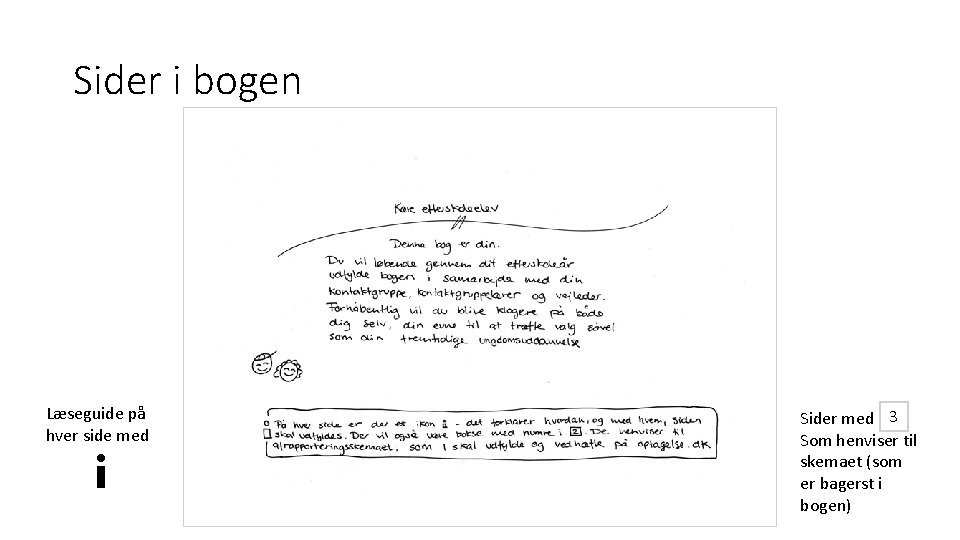 Sider i bogen
Kære efterskoleelev
Denne bog er din.
Du vil løbende gennem dit efterskoleår
udfylde bogen i samarbejde med din
kontaktgruppe, kontaktgruppelærer og vejleder.
Forhåbentlig vil du blive klogere på både
dig selv, din evne til at træffe valg såvel
som din fremtidige ungdomsuddannelse
På hver side er der et ikon i - det forklarer hvordan, og med hvem, siden
skal udfyldes. Der vil også være bokse med numre i 2. De henviser til
afrapporteringsskemaet, som I skal udfylde og vedhæfte på optagelse.dk
Læseguide på
hver side med
i
Sider med 3
Som henviser til
skemaet (som
er bagerst i
bogen)